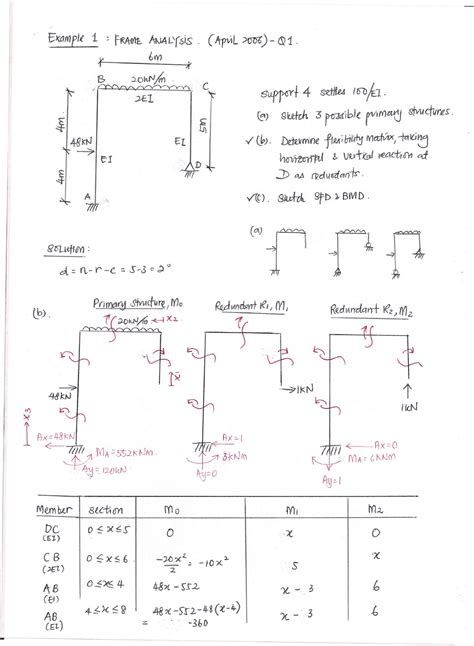 Example 1 : FRAME ANALYSIS. (April 2006) - Q1.
6m
B 20kN/m C
2EI
4m
48kN
EI EI
5m
4m
D
A
support 4 settles 100/EI.
(a) sketch 3 possible primary structures.
✓(b). Determine flexibility matrix, taking
horizontal & vertical reaction at
D as redundants.
✓(c). Sketch SFD & BMD.
(a)
solution:
d = n-r-c = 5-3 = 2°
(b).
Primary structure, M₀ Redundant R₁, M₁ Redundant R₂, M₂
20kN/m x₂
x̄
48kN
1kN
1kN
x₃
Ax=48kN
MA=552kNm
Ay=120kN
Ax=1
3kNm
Ay=0
Ax=0
MA=6kNm
Ay=1
Member section M₀ M₁ M₂
DC (EI) 0≤x≤5 0 x 0
CB (2EI) 0≤x≤6 -20x²/2 = -10x² 5 x
AB (EI) 0≤x≤4 48x-552 x-3 6
AB (EI) 4≤x≤8 48x-552-48(x-4) = -360 x-3 6